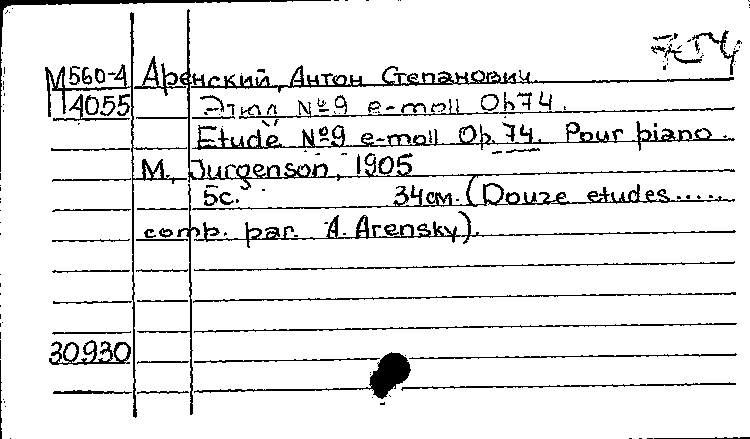 754
М560-4 Аренский, Антон Степанович.
14055 Этюд №9 e-moll Op74.
Etude №9 e-moll Op. 74. Pour piano.
M., Jurgenson, 1905
5с. 34см. (Douze etudes.....
comp. par. A. Arensky).
30930